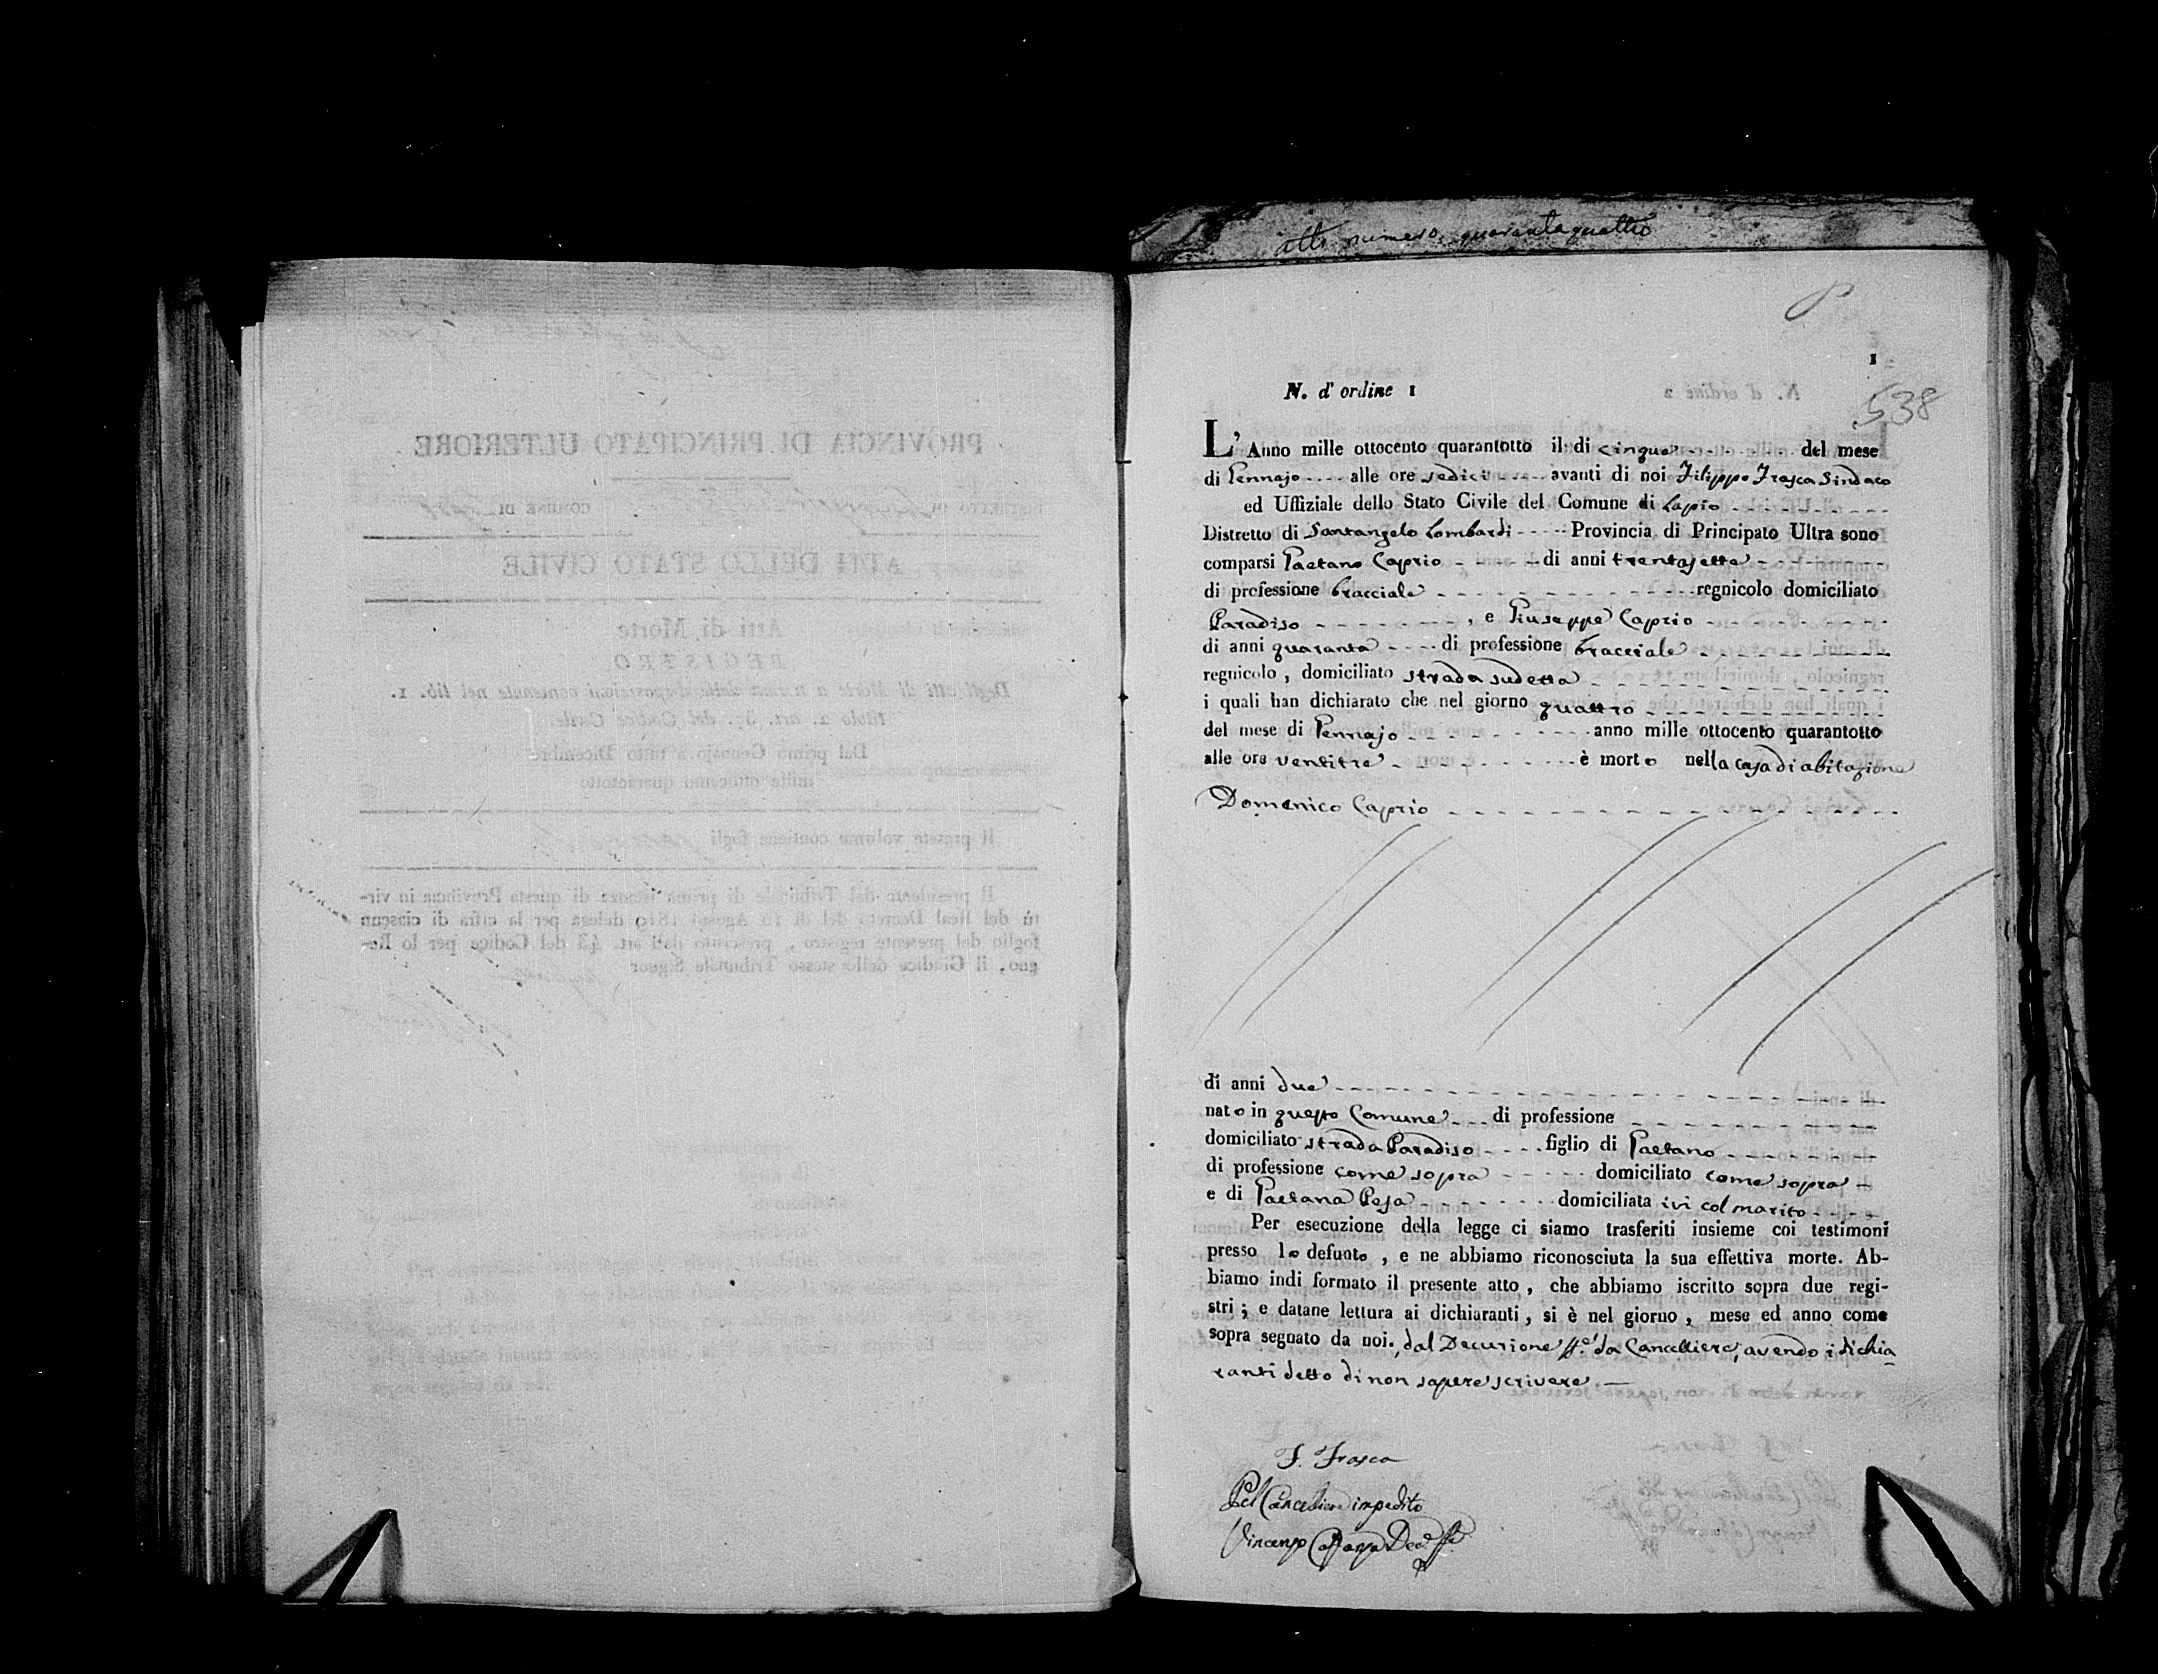 atto numero quarantaquattro
1
538
N. d' ordine 1
L' Anno mille ottocento quarantotto il di cinque del mese
di Gennajo alle ore sedici avanti di noi Filippo Frasca Sindaco
ed Uffiziale dello Stato Civile del Comune di Lapio
Distretto di Santangelo Lombardi Provincia di Principato Ultra sono
comparsi Gaetano Caprio di anni trentasette
di professione bracciale regnicolo domiciliato
Paradiso , e Giuseppe Caprio
di anni quaranta di professione bracciale
regnicolo , domiciliato strada sudetta
i quali han dichiarato che nel giorno quattro
del mese di Gennajo anno mille ottocento quarantotto
alle ore ventitre è morto nella casa di abitazione
Domenico Caprio
di anni due
nato in questo Comune di professione
domiciliato strada Paradiso figlio di Gaetano
di professione come sopra domiciliato come sopra
e di Gaetana Pesa domiciliata ivi col marito
Per esecuzione della legge ci siamo trasferiti insieme coi testimoni
presso lo defunto , e ne abbiamo riconosciuta la sua effettiva morte. Ab-
biamo indi formato il presente atto , che abbiamo iscritto sopra due regi-
stri ; e datane lettura ai dichiaranti , si è nel giorno , mese ed anno come
sopra segnato da noi, dal Decurione ff.e da Cancelliere, avendo i dichia
ranti detto di non sapere scrivere
F. Frasca
Pel Cancelliere impedito
Vincenzo Dec.e ff.e
PROVINCIA DI PRINCIPATO ULTERIORE
COMUNE DI
ATTI DELLO STATO CIVILE
Atti di Morte
REGISTRO
Degli atti di Morte a norma delle disposizioni contenute nel lib. 1.
titolo 2. art. del Codice Civile
Dal primo Gennajo a tutto Dicembre
mille ottocento quarantotto
Il presente volume contiene fogli
Il presidente del Tribunale di prima istanza di questa Provincia in vir-
tù del Real Decreto del di Agosto delega per la cifra di ciascun
foglio del presente registro , prescritto dall'art. 43 del Codice per lo Re-
gno, il Giudice dello stesso Tribunale Signor